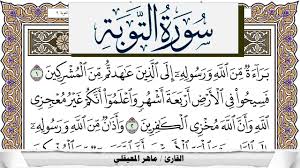 سُورَةُ التَّوْبَةِ
بَرَاءَةٌ مِّنَ اللَّهِ وَرَسُولِهِ إِلَى الَّذِينَ عَاهَدتُّم مِّنَ الْمُشْرِكِينَ ١
فَسِيحُوا فِي الْأَرْضِ أَرْبَعَةَ أَشْهُرٍ وَاعْلَمُوا أَنَّكُمْ غَيْرُ مُعْجِزِي
اللَّهِ وَأَنَّ اللَّهَ مُخْزِي الْكَافِرِينَ ٢ وَأَذَانٌ مِّنَ اللَّهِ وَرَسُولِهِ
القارئ / ماهر المعيقلي